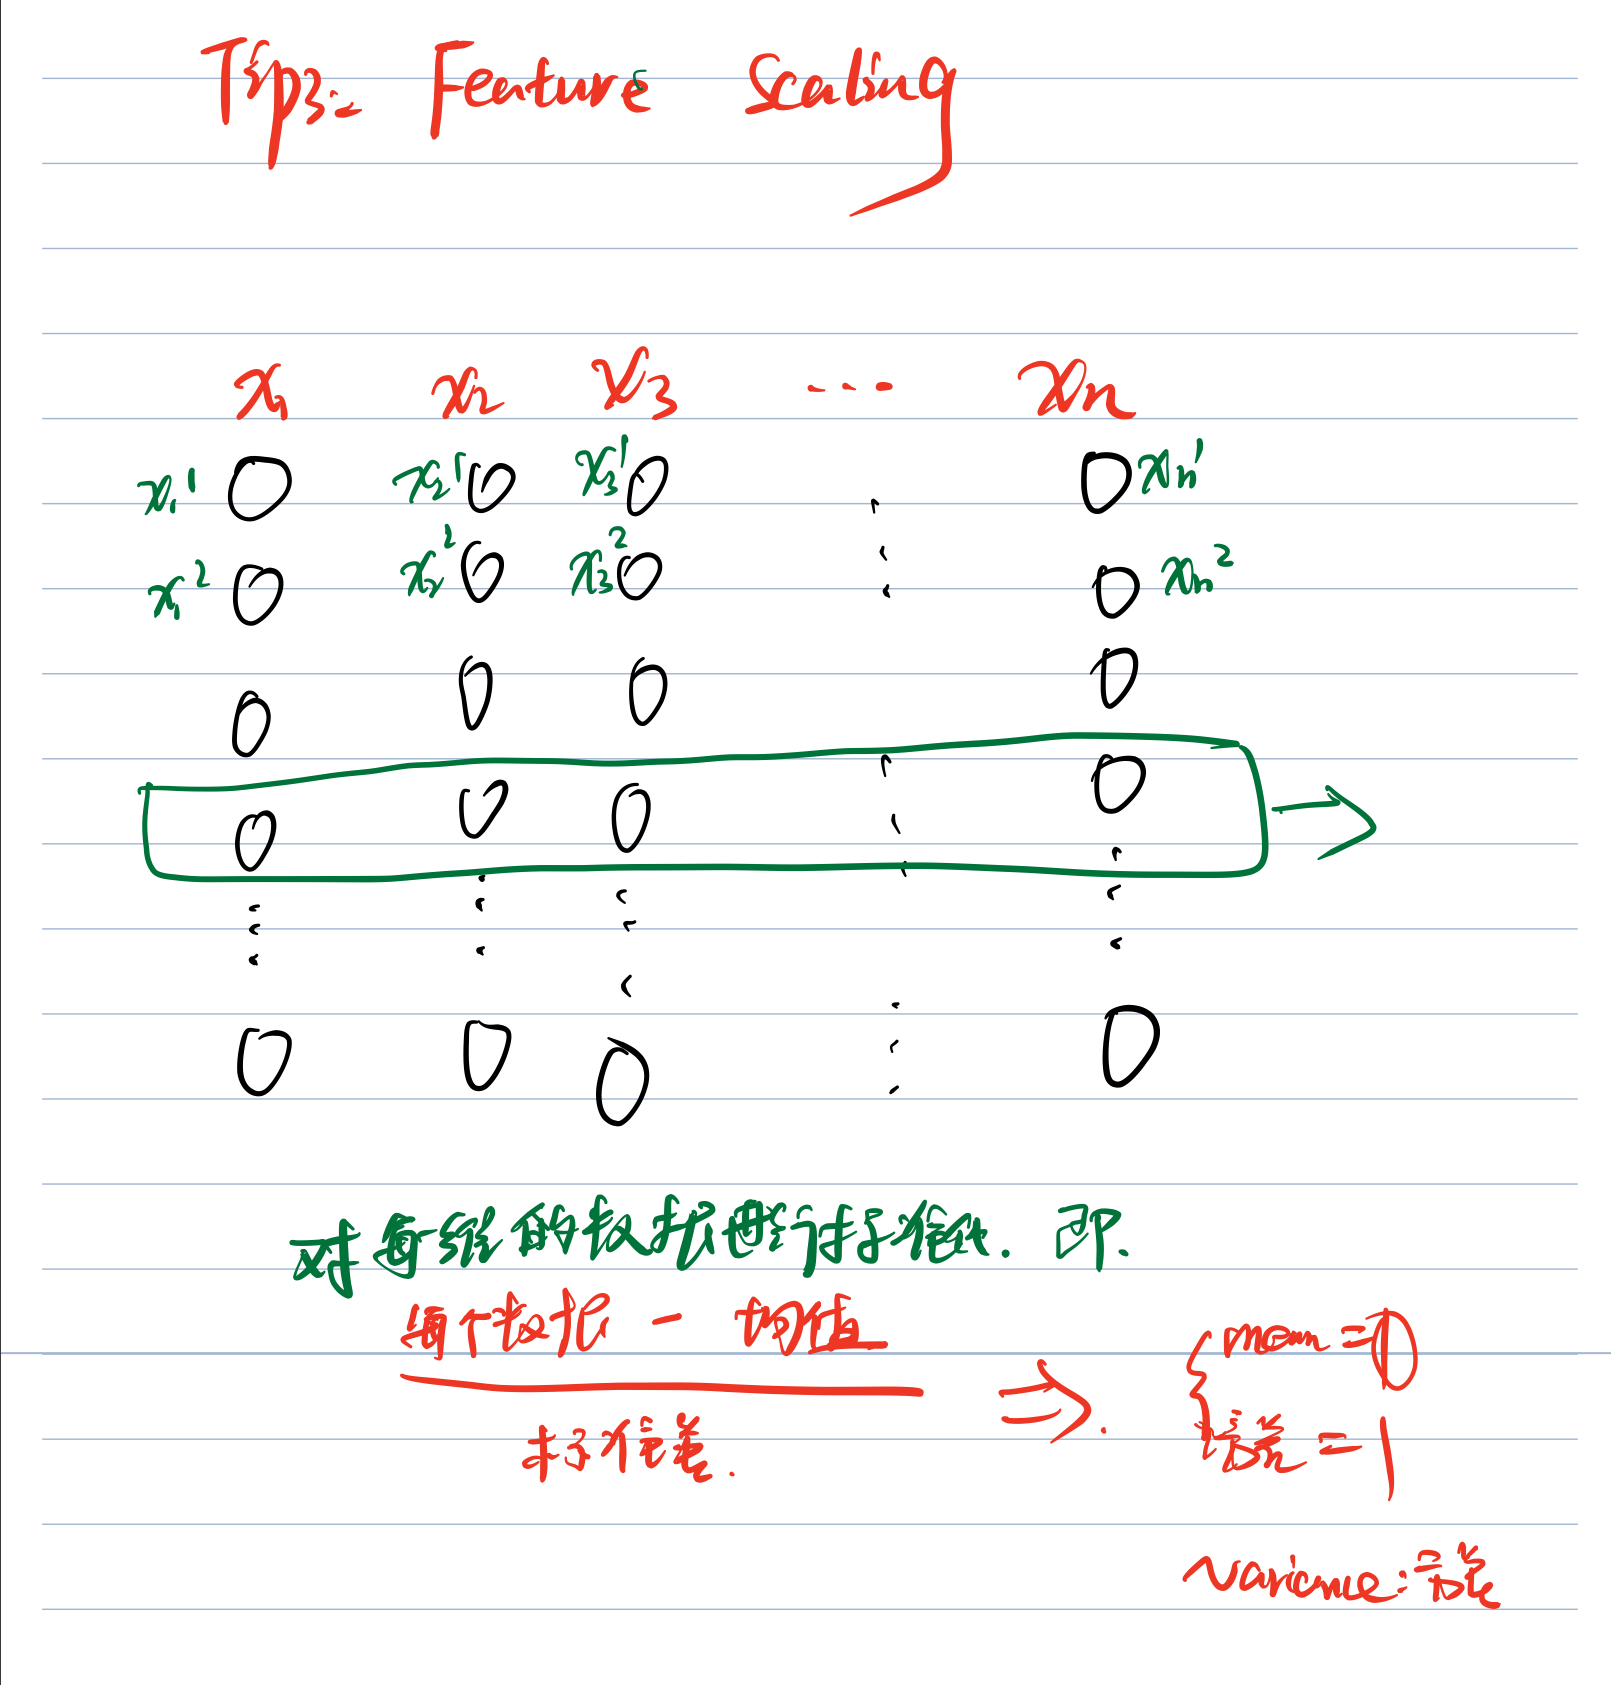 Tip3: Feature Scaling
x₁ x₂ x₃ ... xₙ
x₁¹ x₂¹ x₃¹ xₙ¹
x₁² x₂² x₃² xₙ²
对每维的数据进行标准化. 即.
每个数据 - 均值
标准差.
⇒.
{ mean = 0
方差 = 1
variance: 方差